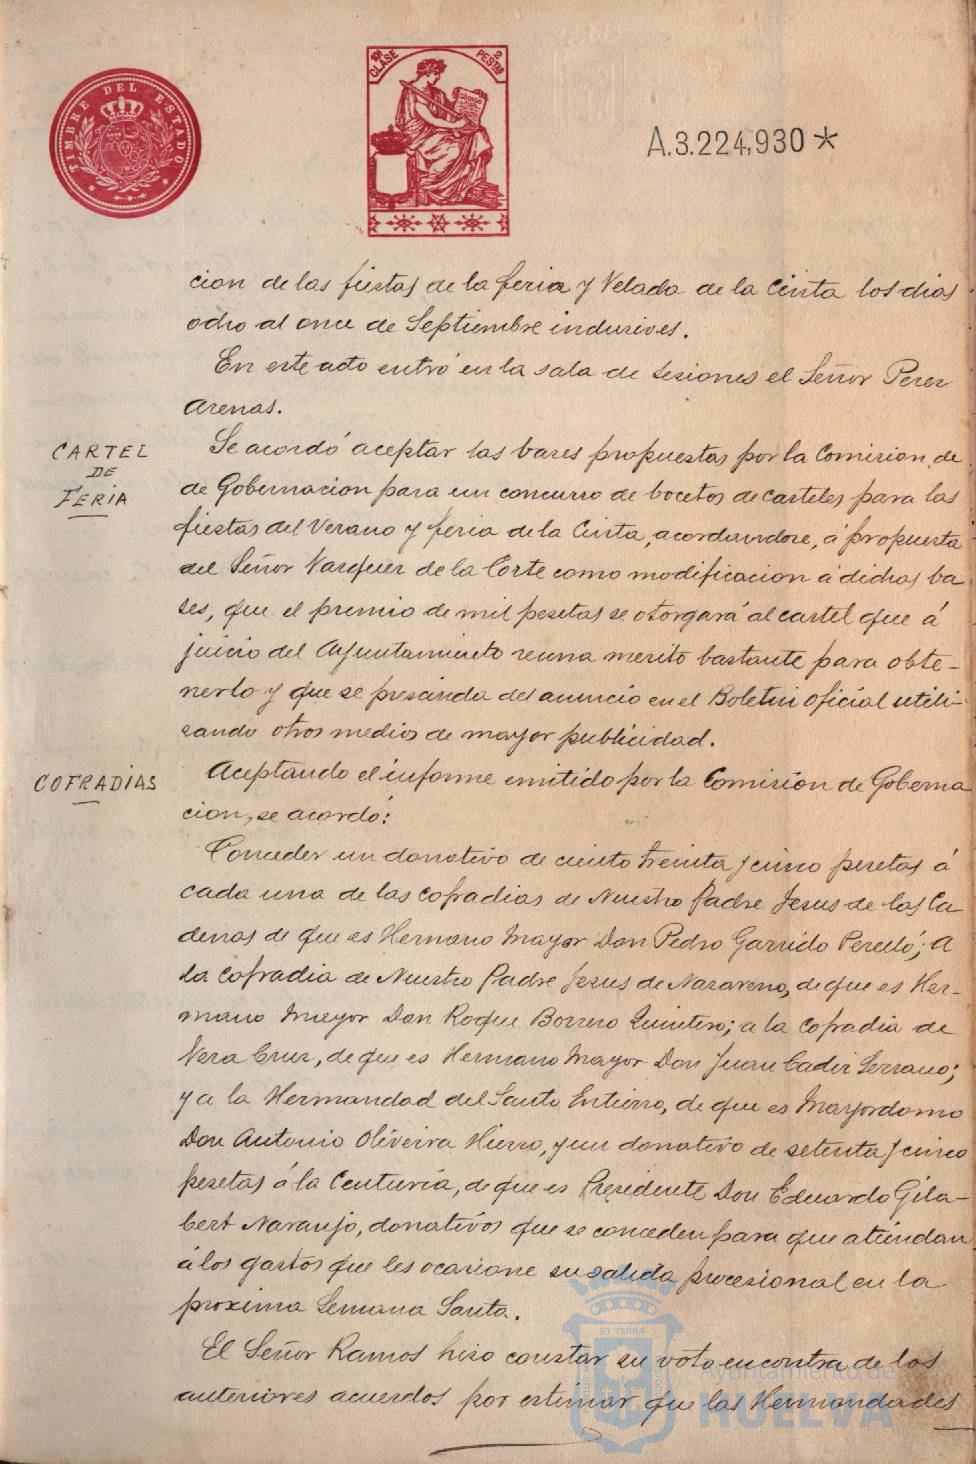 TIMBRE DEL ESTADO
10ª CLASE
2 PESTAS
CODIGO
A.3.224,930*
cion de las fiestas de la feria y Velada de la Cinta los dias
ocho al once de Septiembre inclusives.
En este acto entró en la sala de sesiones el Señor Perez
Arenas.
CARTEL
DE
FERIA
Se acordó aceptar las bases propuestas por la Comision de
de Gobernacion para un concurso de bocetos de carteles para las
fiestas del Verano y feria de la Cinta, acordandose, á propuesta
del Señor Vazquez de la Corte como modificacion á dichas ba
ses, que el premio de mil pesetas se otorgará al cartel que á
juicio del Ayuntamiento reuna merito bastante para obte-
nerlo y que se prescinda del anuncio en el Boletin oficial utili-
zando otros medios de mayor publicidad.
COFRADIAS
Aceptando el informe emitido por la Comisión de Goberna
cion, se acordó:
Conceder un donativo de ciento treinta y cinco pesetas á
cada una de las cofradias de Nuestro Padre Jesus de las Ca
denas de que es Hermano Mayor Don Pedro Garrido Perelló; A
la cofradia de Nuestro Padre Jesus de Nazareno, de que es Her-
mano Mayor Don Roque Borrero Quintero; a la cofradia de
Vera Cruz, de que es Hermano Mayor Don Juan Cadiz Serrano;
y a la Hermandad del Santo Entierro, de que es Mayordomo
Don Antonio Oliveira Hierro, y un donativo de setenta y cinco
pesetas á la Centuria, de que es Presidente Don Eduardo Gila-
bert Naranjo, donativos que se conceden para que atiendan
á los gastos que les ocasione su salida procesional en la
proxima Semana Santa.
El Señor Ramos hizo constar su voto en contra de los
anteriores acuerdos por estimar que las Hermandades
ET TERRÆ
Ayuntamiento de
HUELVA